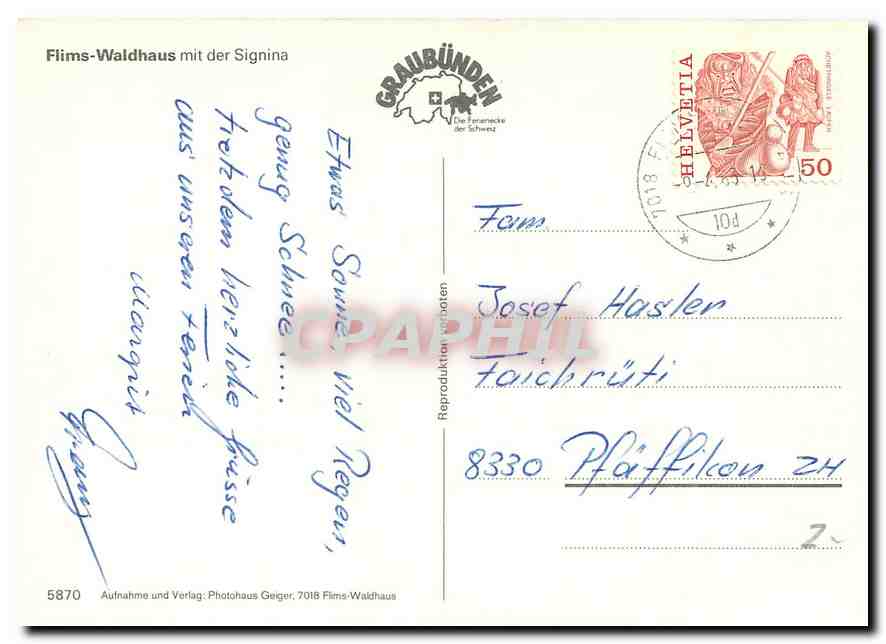 Flims-Waldhaus mit der Signina
GRAUBÜNDEN
Die Ferienecke
der Schweiz
HELVETIA
ACHETRINGELE LAUPEN
50
7018 FL
Etwas Sonne, viel Regen,
genug Schnee.....
trotzdem herzliche Grüsse
aus unseren Ferien
Margrit
Fam.
Josef Hasler
Faichrüti
8330 Pfäffikon ZH
2.-
Reproduktion verboten
CPAPHIL
5870 Aufnahme und Verlag: Photohaus Geiger, 7018 Flims-Waldhaus